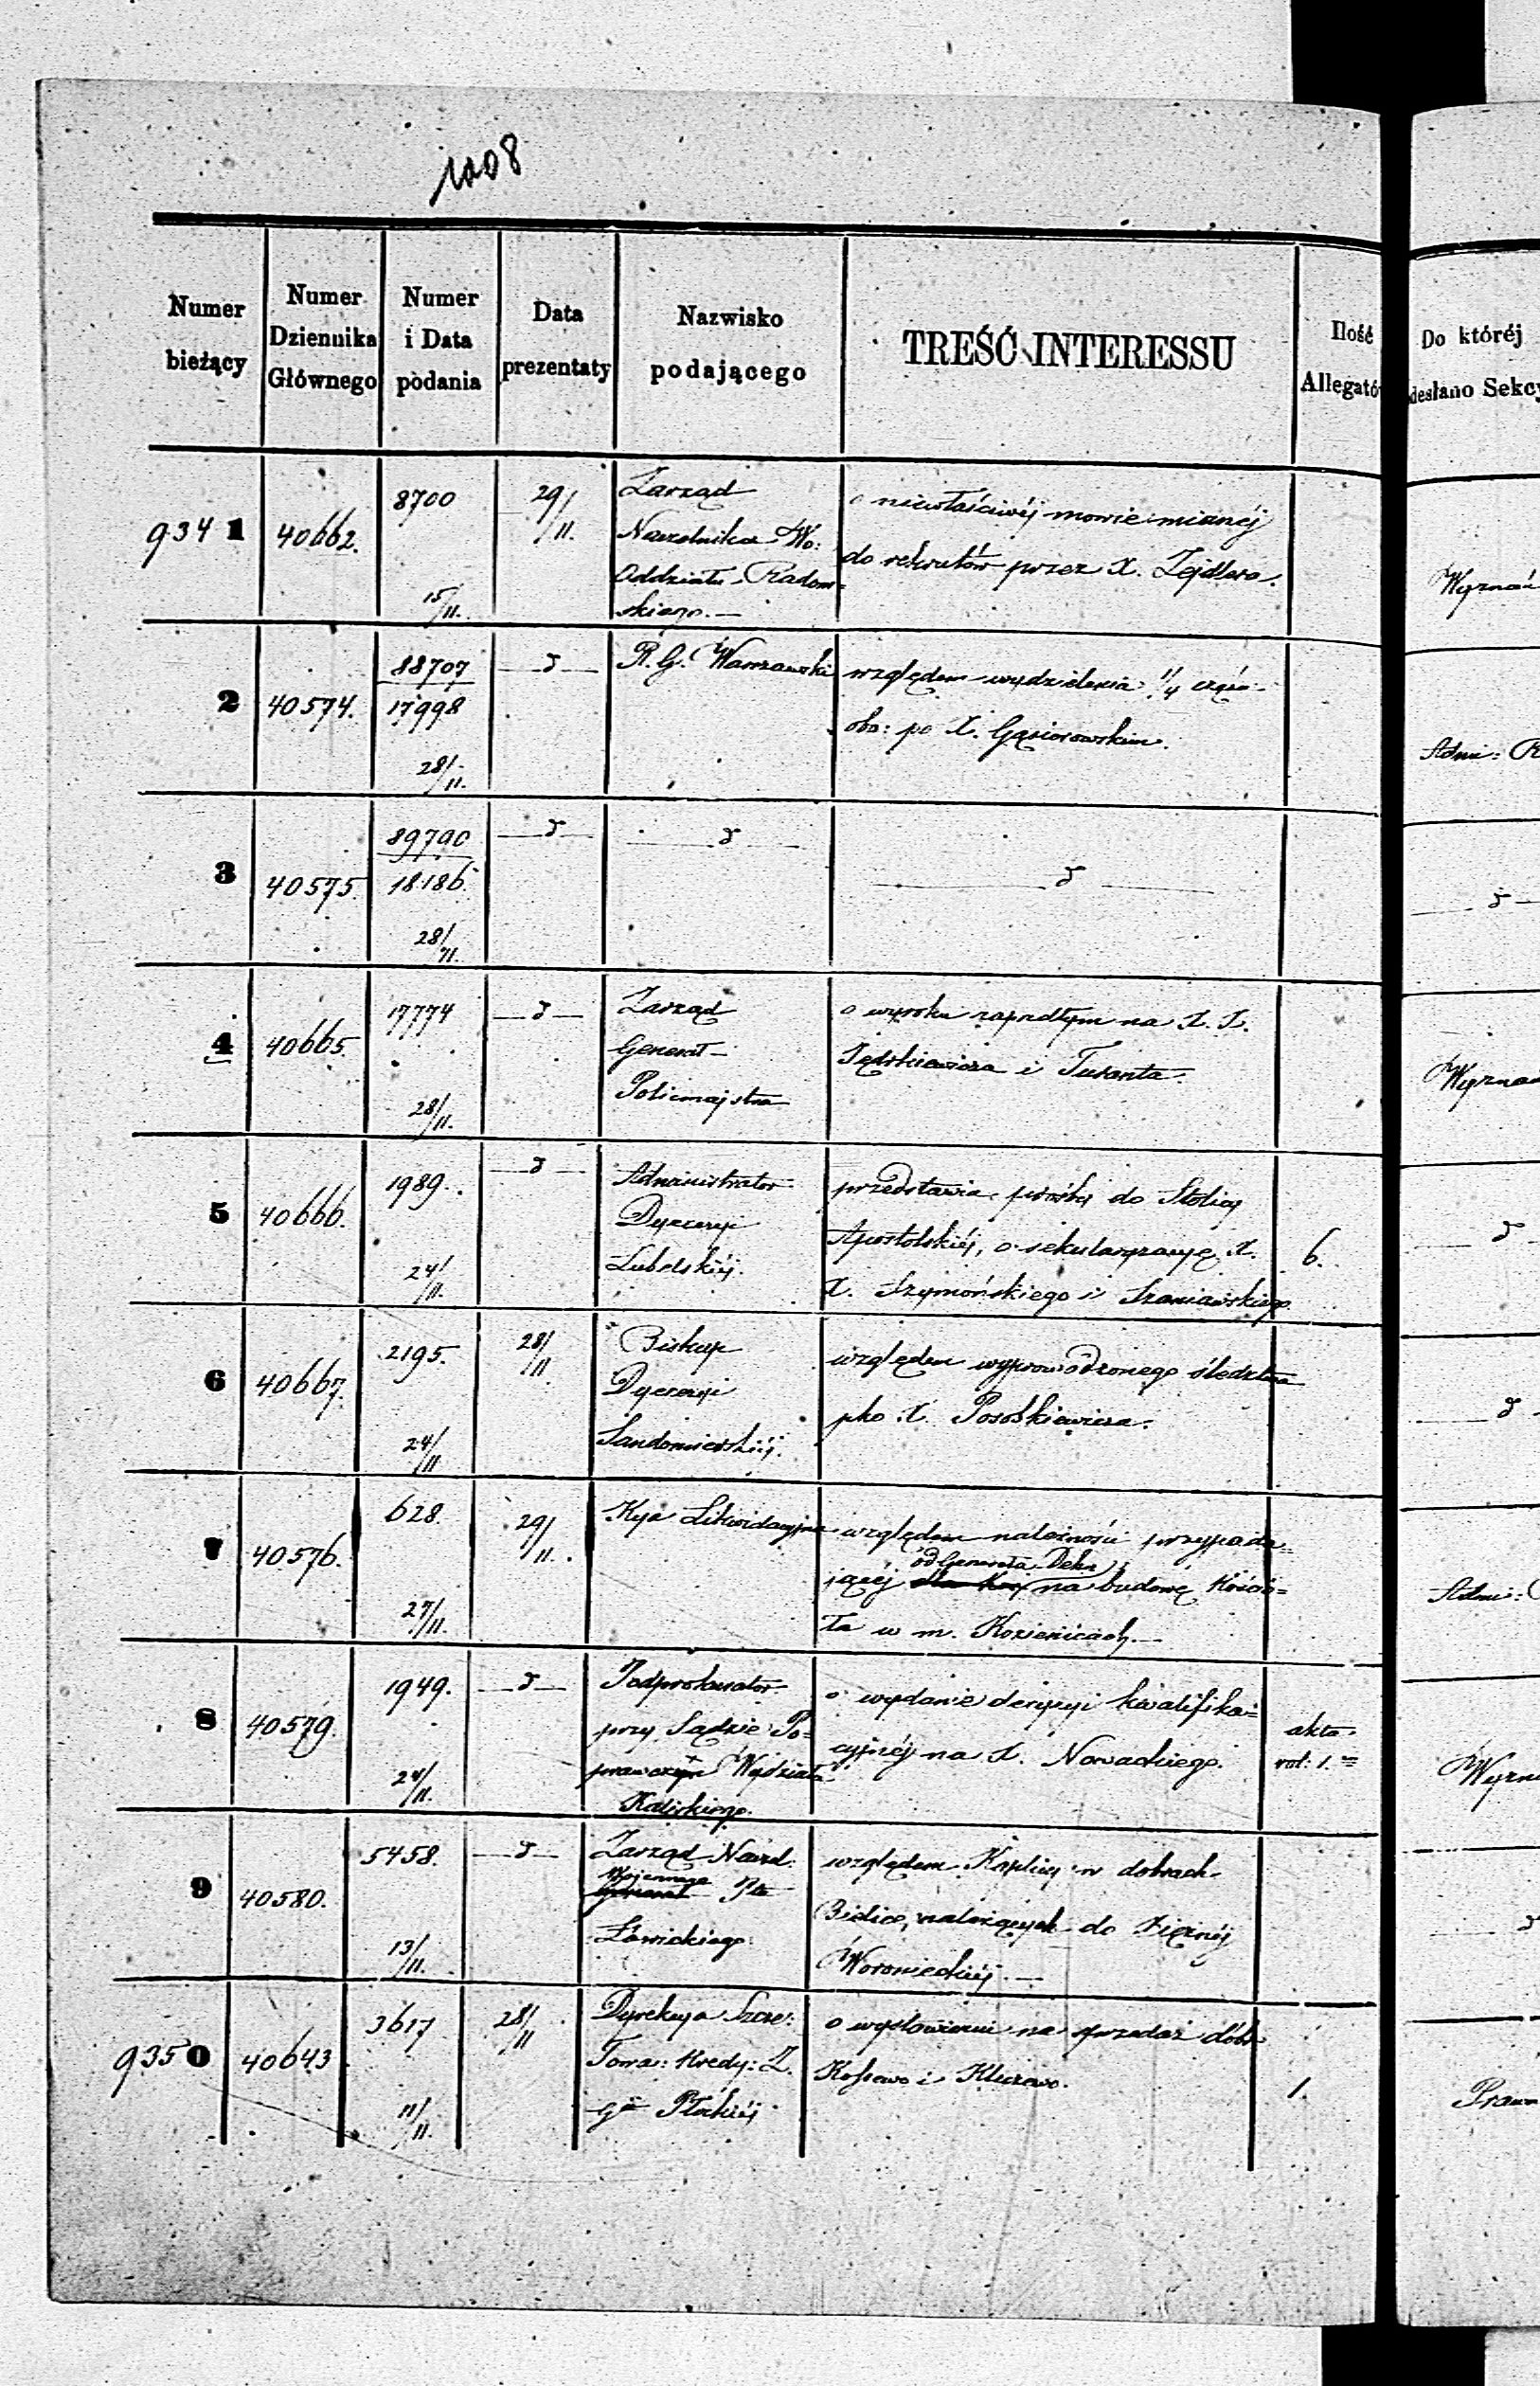 1008
Numer bieżący
Numer Dziennika Głównego
Numer i Data podania
Data prezentaty
Nazwisko podającego
TREŚĆ INTERESSU
Ilość Allegató
Do któréj
desłano Sekcy
934 1
40662.
8700
15/II.
29/II.
Zarząd
Naczelnika Wo:
Oddziału Radom=
skiego.—
o niewłaściwéj mowie mianéj
do rekrutów przez X. Zejdlera.
2
40574.
88707
17998
28/II.
— d —
R. G. Warszawski
względem wydzielenia 1/4 częś:
oba: po X. Gąsiorowskim.
Adm: R
3
40575
89790
18186.
28/II.
— d —
— d —
— d —
— d —
4
40665.
17774
28/II.
— d —
Zarząd
Generał–
Policmajstra
o wyroku zapadłym na X. X.
i Tusanta.
5
40666.
1989.
24/II.
— d —
Administrator
Dyecezyi
Lubelskiéj.
przedstawia prośby do Stolicy
Apostolskiéj, o sekularyzacyę X.
X. Szymońskiego i Szaniawskiego
6.
— d —
6
40667.
2195.
24/II
28/II
Biskup
Dyecezyi
Sandomierskiéj.
względem wyprowadzonego śledztwa
pko X. Pososkiewicza.
— d —
7
40576.
628.
27/II.
29/II.
Kya Likwidacyjna
względem należności przypada=
od Generała Dehn
jącéj na budowę Kościo=
ła w m. Kozienicach.—
Adm:
8
40579.
1949.
24/II.
— d —
Podprokurator
przy Sądzie Po=
prawczym Wydziału
Kaliskiego.
o wydanie decyzyi kwalifika=
cyjnéj na X. Nowackiego.
akta
vol: 1.
9
40580.
5458.
13/II.
— d —
Zarząd Naczel.
Wojennego Ptu
Łowickiego.
względem Kaplicy w dobrach
Bielice, należących do Xiężnéj
Woronieckiéj.—
935 0
40643
3617
11/II.
28/II
Dyrekcya Szcze:
Towa: Kredy: Z.
Gu Płockiéj
o wystawieniu na sprzedaż dóbr
Kossewo i Kluczewo.
1.